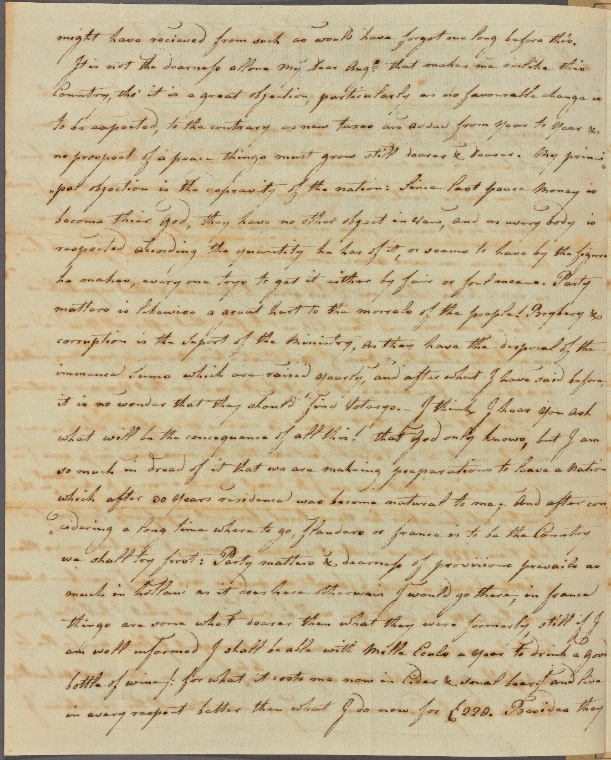 might have recieved from such as would have forgot me long before this.
It is not the dearness allone My Dear Augt. that makes me dislike this
Country, tho' it is a great objection, particularly as no favourable change is
to be expected, to the contrary as new taxes are added from year to year &
no prospect of a peace things must grow still dearer & dearer. My princi
pal objection is the depravity of the nation: Since last peace Money is
become their God, they have no other object in view, and as every body is
respected according the quantity he has of it, or seems to have by the figure
he makes, every one trys to get it either by fair or foul means. Party
matters is likewise a great hurt to the morrals of the people! Brybery &
corruption is the suport of the Ministry, as they have the disposal of the
immence sums which are raised yearly, and after what I have said before
it is no wonder that they should find Votarys. I think I hear you ask
what will be the consequence of all this! that God only knows, but I am
so much in dread of it that we are making preparations to leave a Nation
which after 20 years residence was become natural to me; And after con
sidering a long time where to go, flanders or france is to be the Country
we shall try first: Party matters & dearness of provisions prevails as
much in holland as it does here otherwais I would go there, in france
things are some what dearer then what they were formerly, still if I
am well informed I shall be able with Mille Ecus a year to drink a good
bottle of wine /: for what it costs me now in Cider & small beer :/ and live
in every respect better then what I do now for £220. Besides they